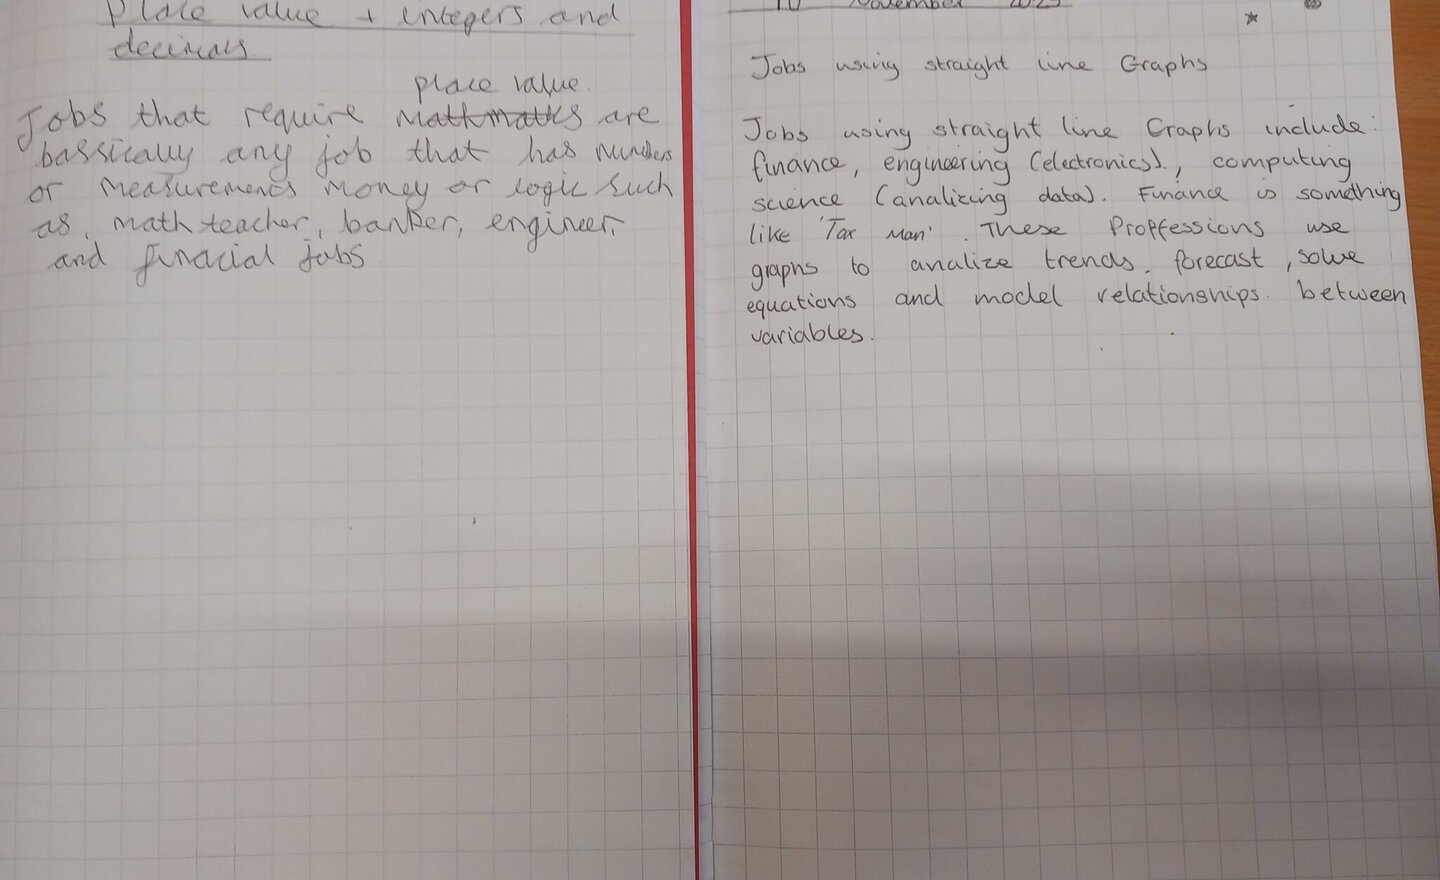 Place value + integers and
decimals
place value.
Jobs that require Mathmatics are
bassically any job that has numbers
or measurements money or logic such
as, math teacher, banker, engineer,
and finacial jobs
10 November 2025
Jobs using straight line Graphs
Jobs using straight line Graphs include:
finance, engineering (electronics)., computing
science (analizing data). Finance is something
like 'Tax Man'. These Proffessions use
graphs to analize trends. forecast, solve
equations and model relationships. between
variables.